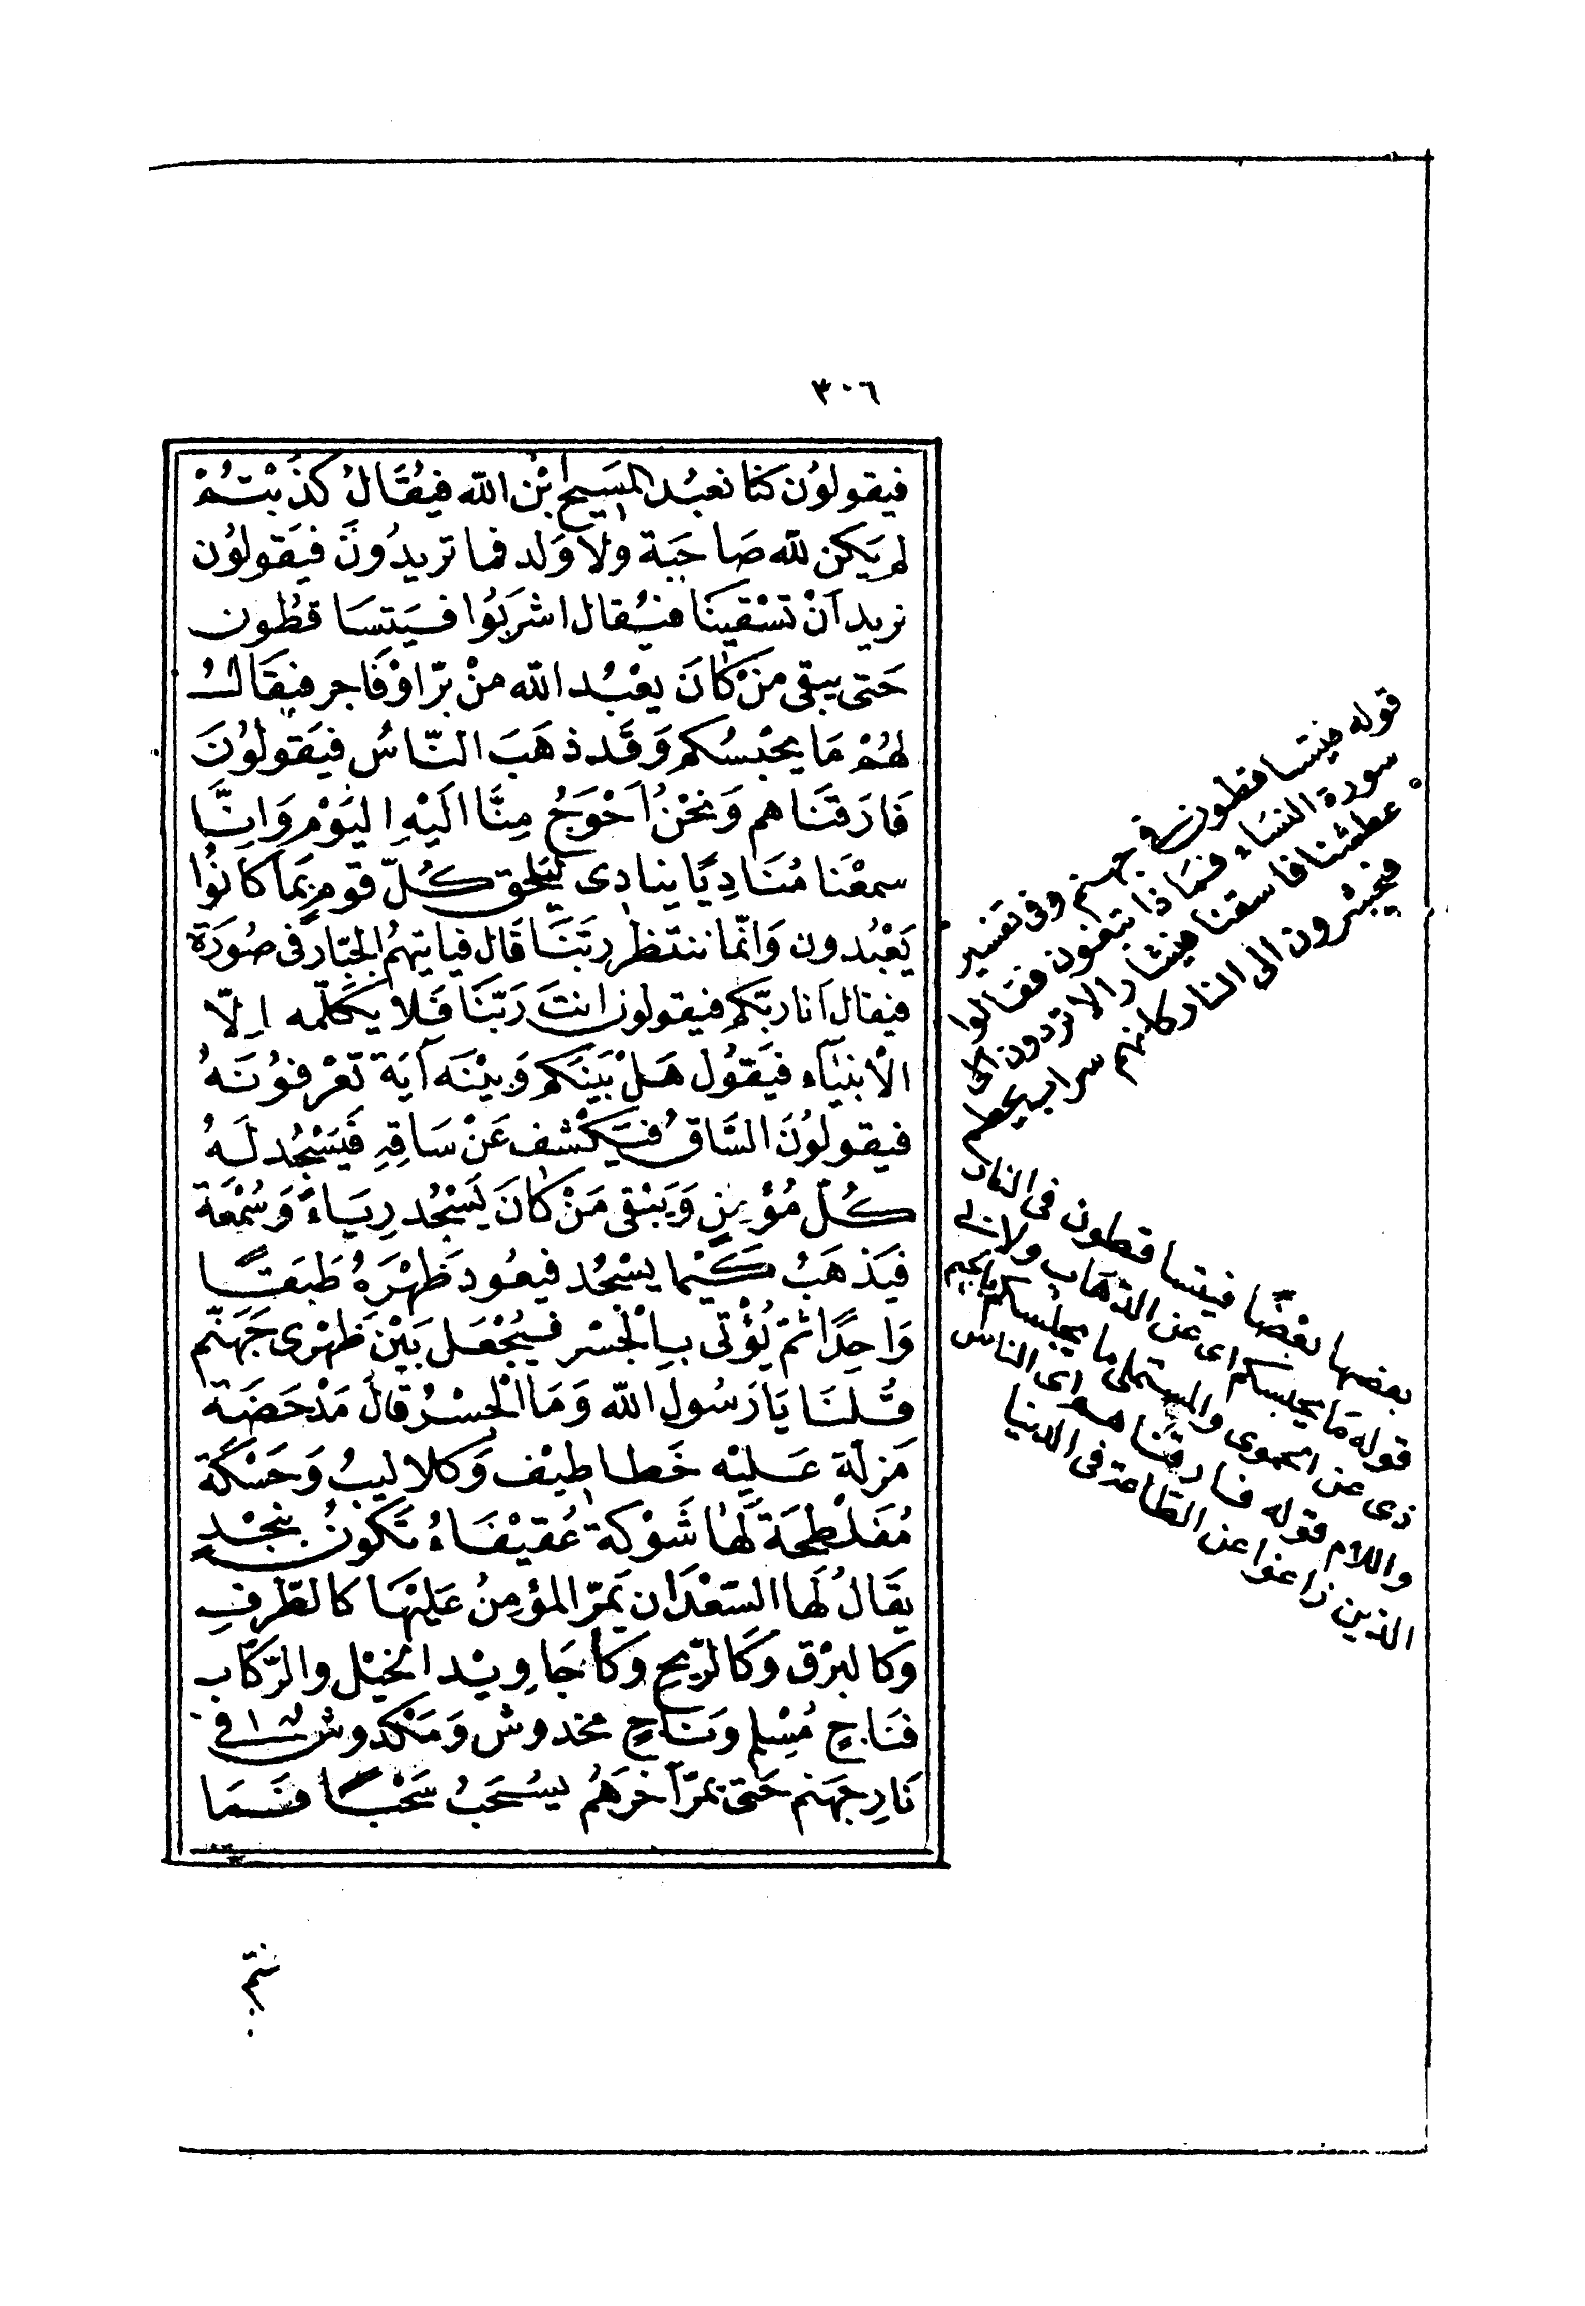 ٣٠٦
فيقولون كنا نعبد المسيح ابن الله فيُقَالُ كَذَبْتُمْ
لم يَكن لله صَاحَبة ولاَ وَلد فما تريدُونَ فيَقولوُن
نريد اَنْ تَسْقيَنَا فيُقال اشرَبُوا فَيَتسَاقطُون
حَتى يبقى مَنْ كَانَ يعْبُد الله منْ برّ اوْ فَاجر فيقَالُ
لهُمْ مَا يحْبسُكم وَقَد ذهَبَ النّاسُ فيَقولوُنَ
فَارَقنَاهم وَنحْنُ اَحْوَجُ مِنَّا الَيْهِ اليَوْم وَانَّا
سمعْنَا مُنَادِيًا ينادِى ليَلحق كُلّ قوم بمَا كانُوا
يَعْبُدون وَانّما ننتظر ربّنَا قَال فياتيهمُ الجبّار فى صُورَة
فيقال اَنا ربّكم فيقولون انتَ رَبّنَا فَلا يكلّمه الّا
الأنبيَآء فيَقوُل هَلْ بَينَكم وَبيْنَه آيَة تَعْرفوُنَهُ
فيقولوُنَ السَّاقُ فيَكْشف عَنْ سَاقِهِ فَيَسْجُد لَهُ
كُلّ مُؤمِنٍ وَيَبْقى مَنْ كَانَ يَسْجُد رِيَاءً وَسُمْعَة
فَيَذهَبُ كَيْما يسْجُد فيعُود ظَهْرَهُ طَبَقًا
وَاحِدًا ثمّ يُؤْتى بِالْجَسْر فيُجْعَل بَيْن ظَهْرى جَهَنّم
قُلنَا يَا رَسُول الله وَمَا الْجَسْرُ قالَ مَدْحَضَة
مَزلّة عَليْه خَطاطِيْف وَكلاليبُ وَحَسْكَة
مُفَلْطحَة لَهَا شَوْكة عُقيْفَاءُ تَكونُ بنجْدٍ
يقَالُ لَها السّعْدَان يَمرّ المؤمِنُ عَليْهَا كالطّرفِ
وَكالبرْق وَكَالرّيح وَكأجَاوِيْد الخيْل والرّكَاب
فنَاجٍ مُسْلم وَنَاجٍ مخدوش وَمَكْدوش فى
نَارِ جهَنم حَتى يمرّ آخرَهُم يسُحَبُ سَحْبًا فَمَا
قوله فيتساقطون فى جهنم وفى تفسير
سورة النسَاء فمَا ذا تبغون فقالوا
عطشنا فاسقنا فيشار الا تردون الى
فيحشرون الى النار كانهم سراب يحطم
بعضها بعْضًا فيتساقطون فى النار
قوله مَا يجلسكم اى عن الذهَاب ولابى
ذى عن الحموى والمستملى ما يجلسكم بالجيم
واللام قوله فارقناهم اى الناس
الذين زاغوا عن الطّاعة فى الدنيا